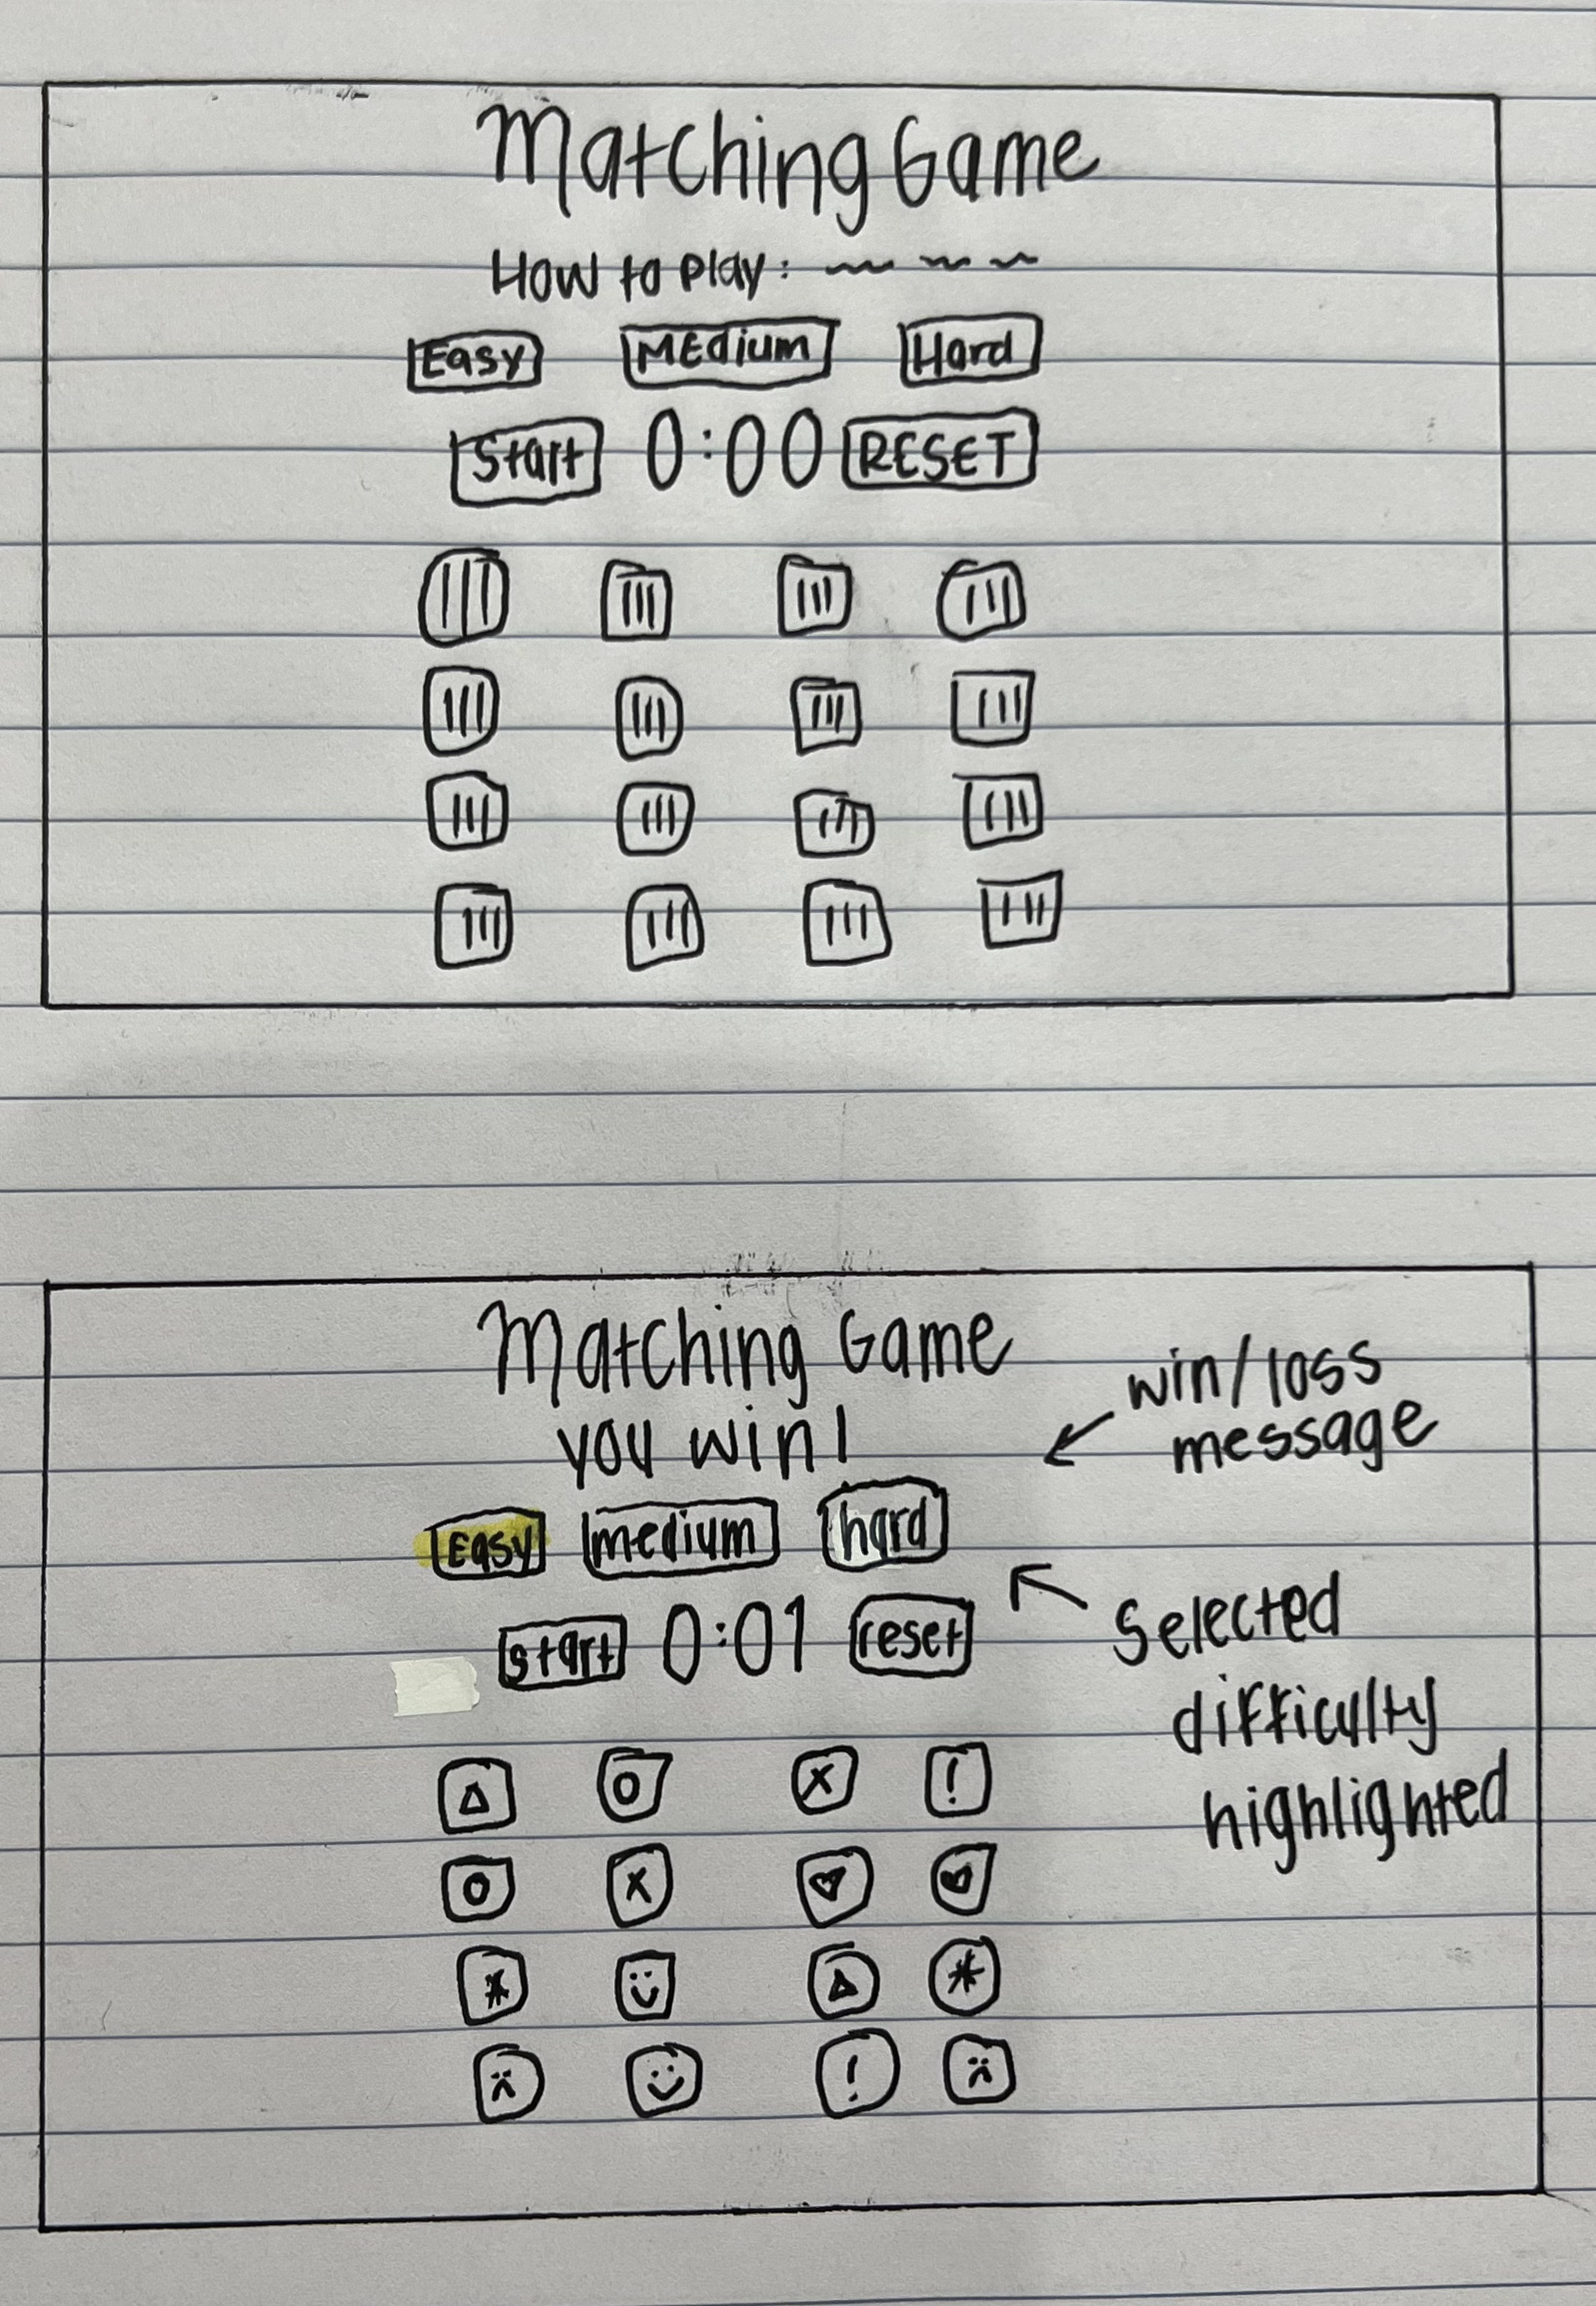 Matching Game
How to play:
Easy Medium Hard
Start 0:00 RESET
Matching Game
you win!
win/loss
message
Easy medium hard
start 0:01 reset
Selected
difficulty
highlighted
X !
X
*
*
!